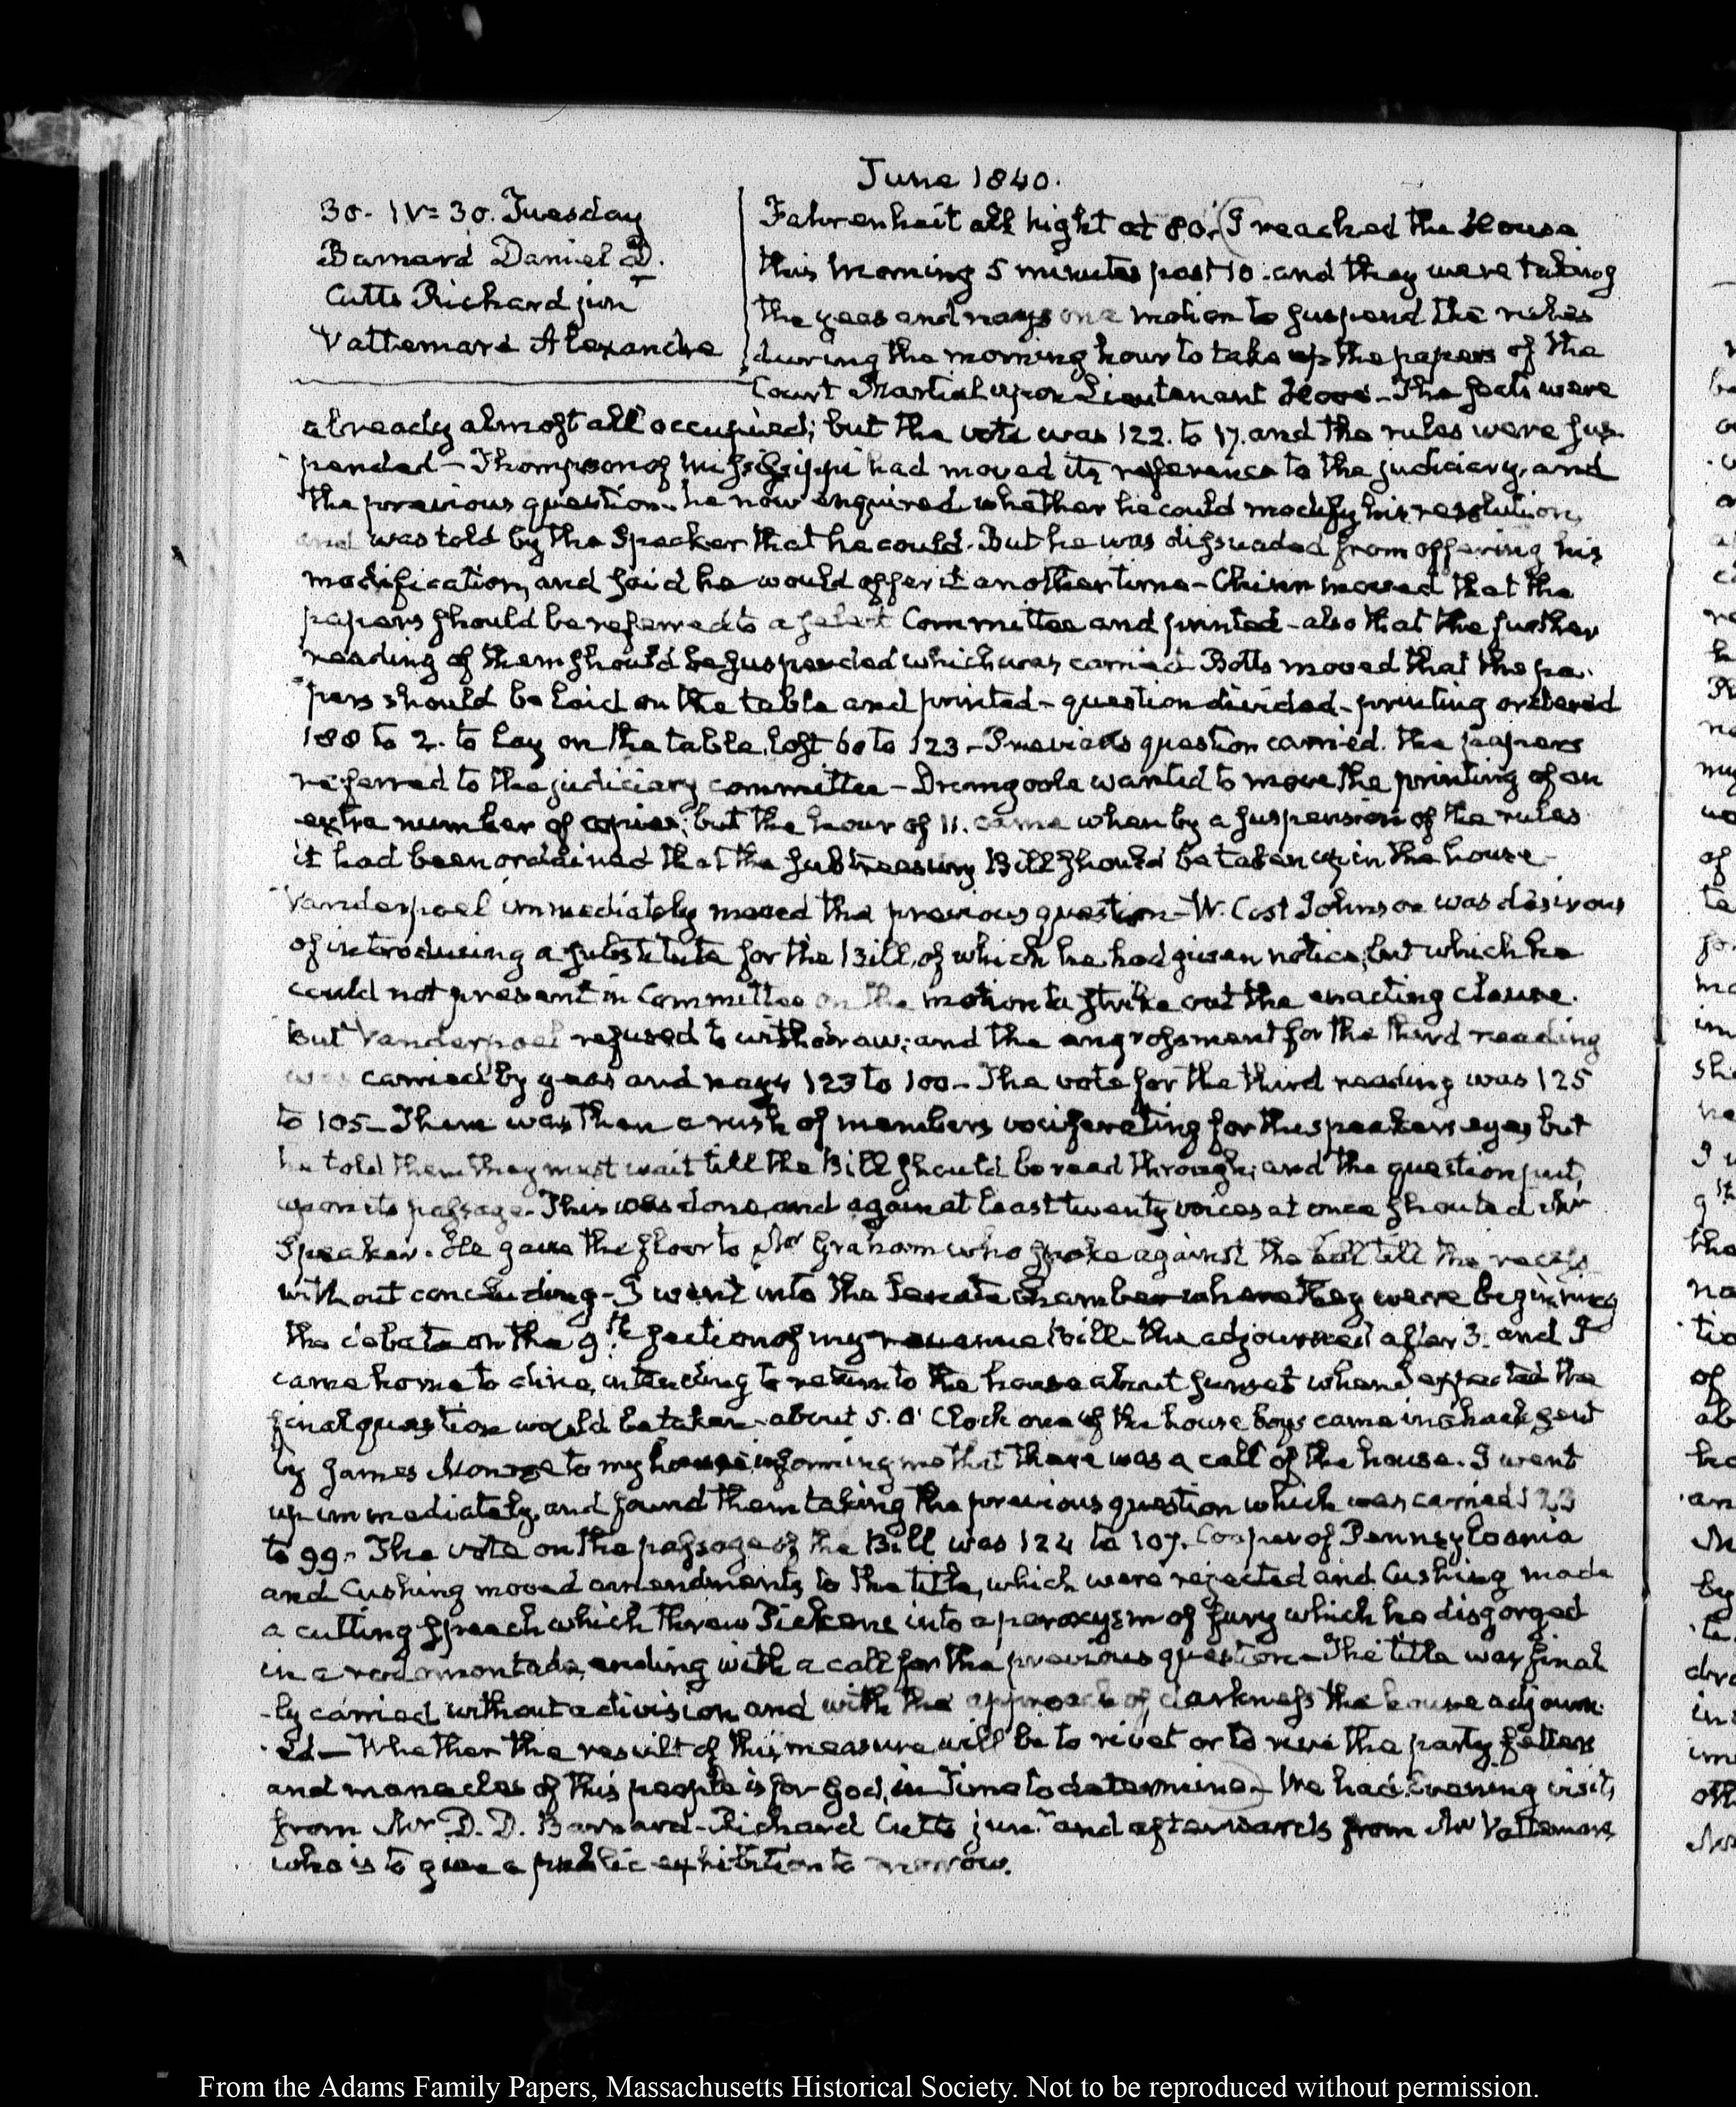 June 1840.
30. IV:30. Tuesday
Barnard Daniel D.
Cutts Richard jun
Vattemare Alexandre
Fahrenheit all night at 80. I reached the House
this morning 5 minutes past 10. and they were taking
the yeas and nays on a motion to suspend the rules
during the morning hour to take up the papers of the
Court Martial upon Lieutenant Hooe - The seats were
already almost all occupied; but the vote was 122. to 17. and the rules were sus-
pended - Thompson of Mississippi had moved its reference to the judiciary, and
the previous question. he now enquired whether he could modify his resolution,
and was told by the Speaker that he could. But he was dissuaded from offering his
modification, and said he would offer it another time - Chinn moved that the
papers should be referred to a select Committee and printed - also that the further
reading of them should be suspended which was carried. Botts moved that the pa-
pers should be laid on the table and printed - question divided - printing ordered
188 to 2. to lay on the table, lost 60 to 123 - Previous question carried. the papers
referred to the judiciary committee - Dromgoole wanted to move the printing of an
extra number of copies; but the hour of 11. came when by a suspension of the rules
it had been ordained that the sub treasury Bill should be taken up in the house -
Vanderpoel immediately moved the previous question - W. Cost Johnson was desirous
of introducing a substitute for the Bill, of which he had given notice, but which he
could not present in Committee on the motion to strike out the enacting clause.
But Vanderpoel refused to withdraw; and the engrossment for the third reading
was carried by yeas and nays 123 to 100 - The vote for the third reading was 125
to 105 - There was then a rush of members vociferating for the speakers eyes but
he told them they must wait till the Bill should be read through; and the question put,
upon its passage - This was done, and again at least twenty voices at once shouted Mr
Speaker. He gave the floor to Mr Graham who spoke against the bill till the recess
without concluding - I went into the Senate Chamber where they were beginning
the debate on the 9th. section of my revenue Bill - the adjourned after 3. and I
came home to dine, intending to return to the house about sunset when I expected the
final question would be taken - about 5. O' Clock one of the house boys came in a hack sent
by James Monroe to my house informing me that there was a call of the house. I went
up immediately, and found them taking the previous question which was carried 123
to 99. - The vote on the passage of the Bill was 124 to 107. Cooper of Pennsylvania
and Cushing moved amendments to the title, which were rejected and Cushing made
a cutting speech which threw Pickens into a paroxysm of fury which he disgorged
in a rodomontade, ending with a call for the previous question - The title was final
-ly carried without a division and with the approach of darkness the house adjourn-
-ed - Whether the result of this measure will be to rivet or to rive the party fetters
and manacles of this people is for God, in Time to determine - We had Evening visits
from Mr D. D. Barnard - Richard Cutts junr. and afterwards from Mr Vattemare
who is to give a public exhibition to morrow.
From the Adams Family Papers, Massachusetts Historical Society. Not to be reproduced without permission.